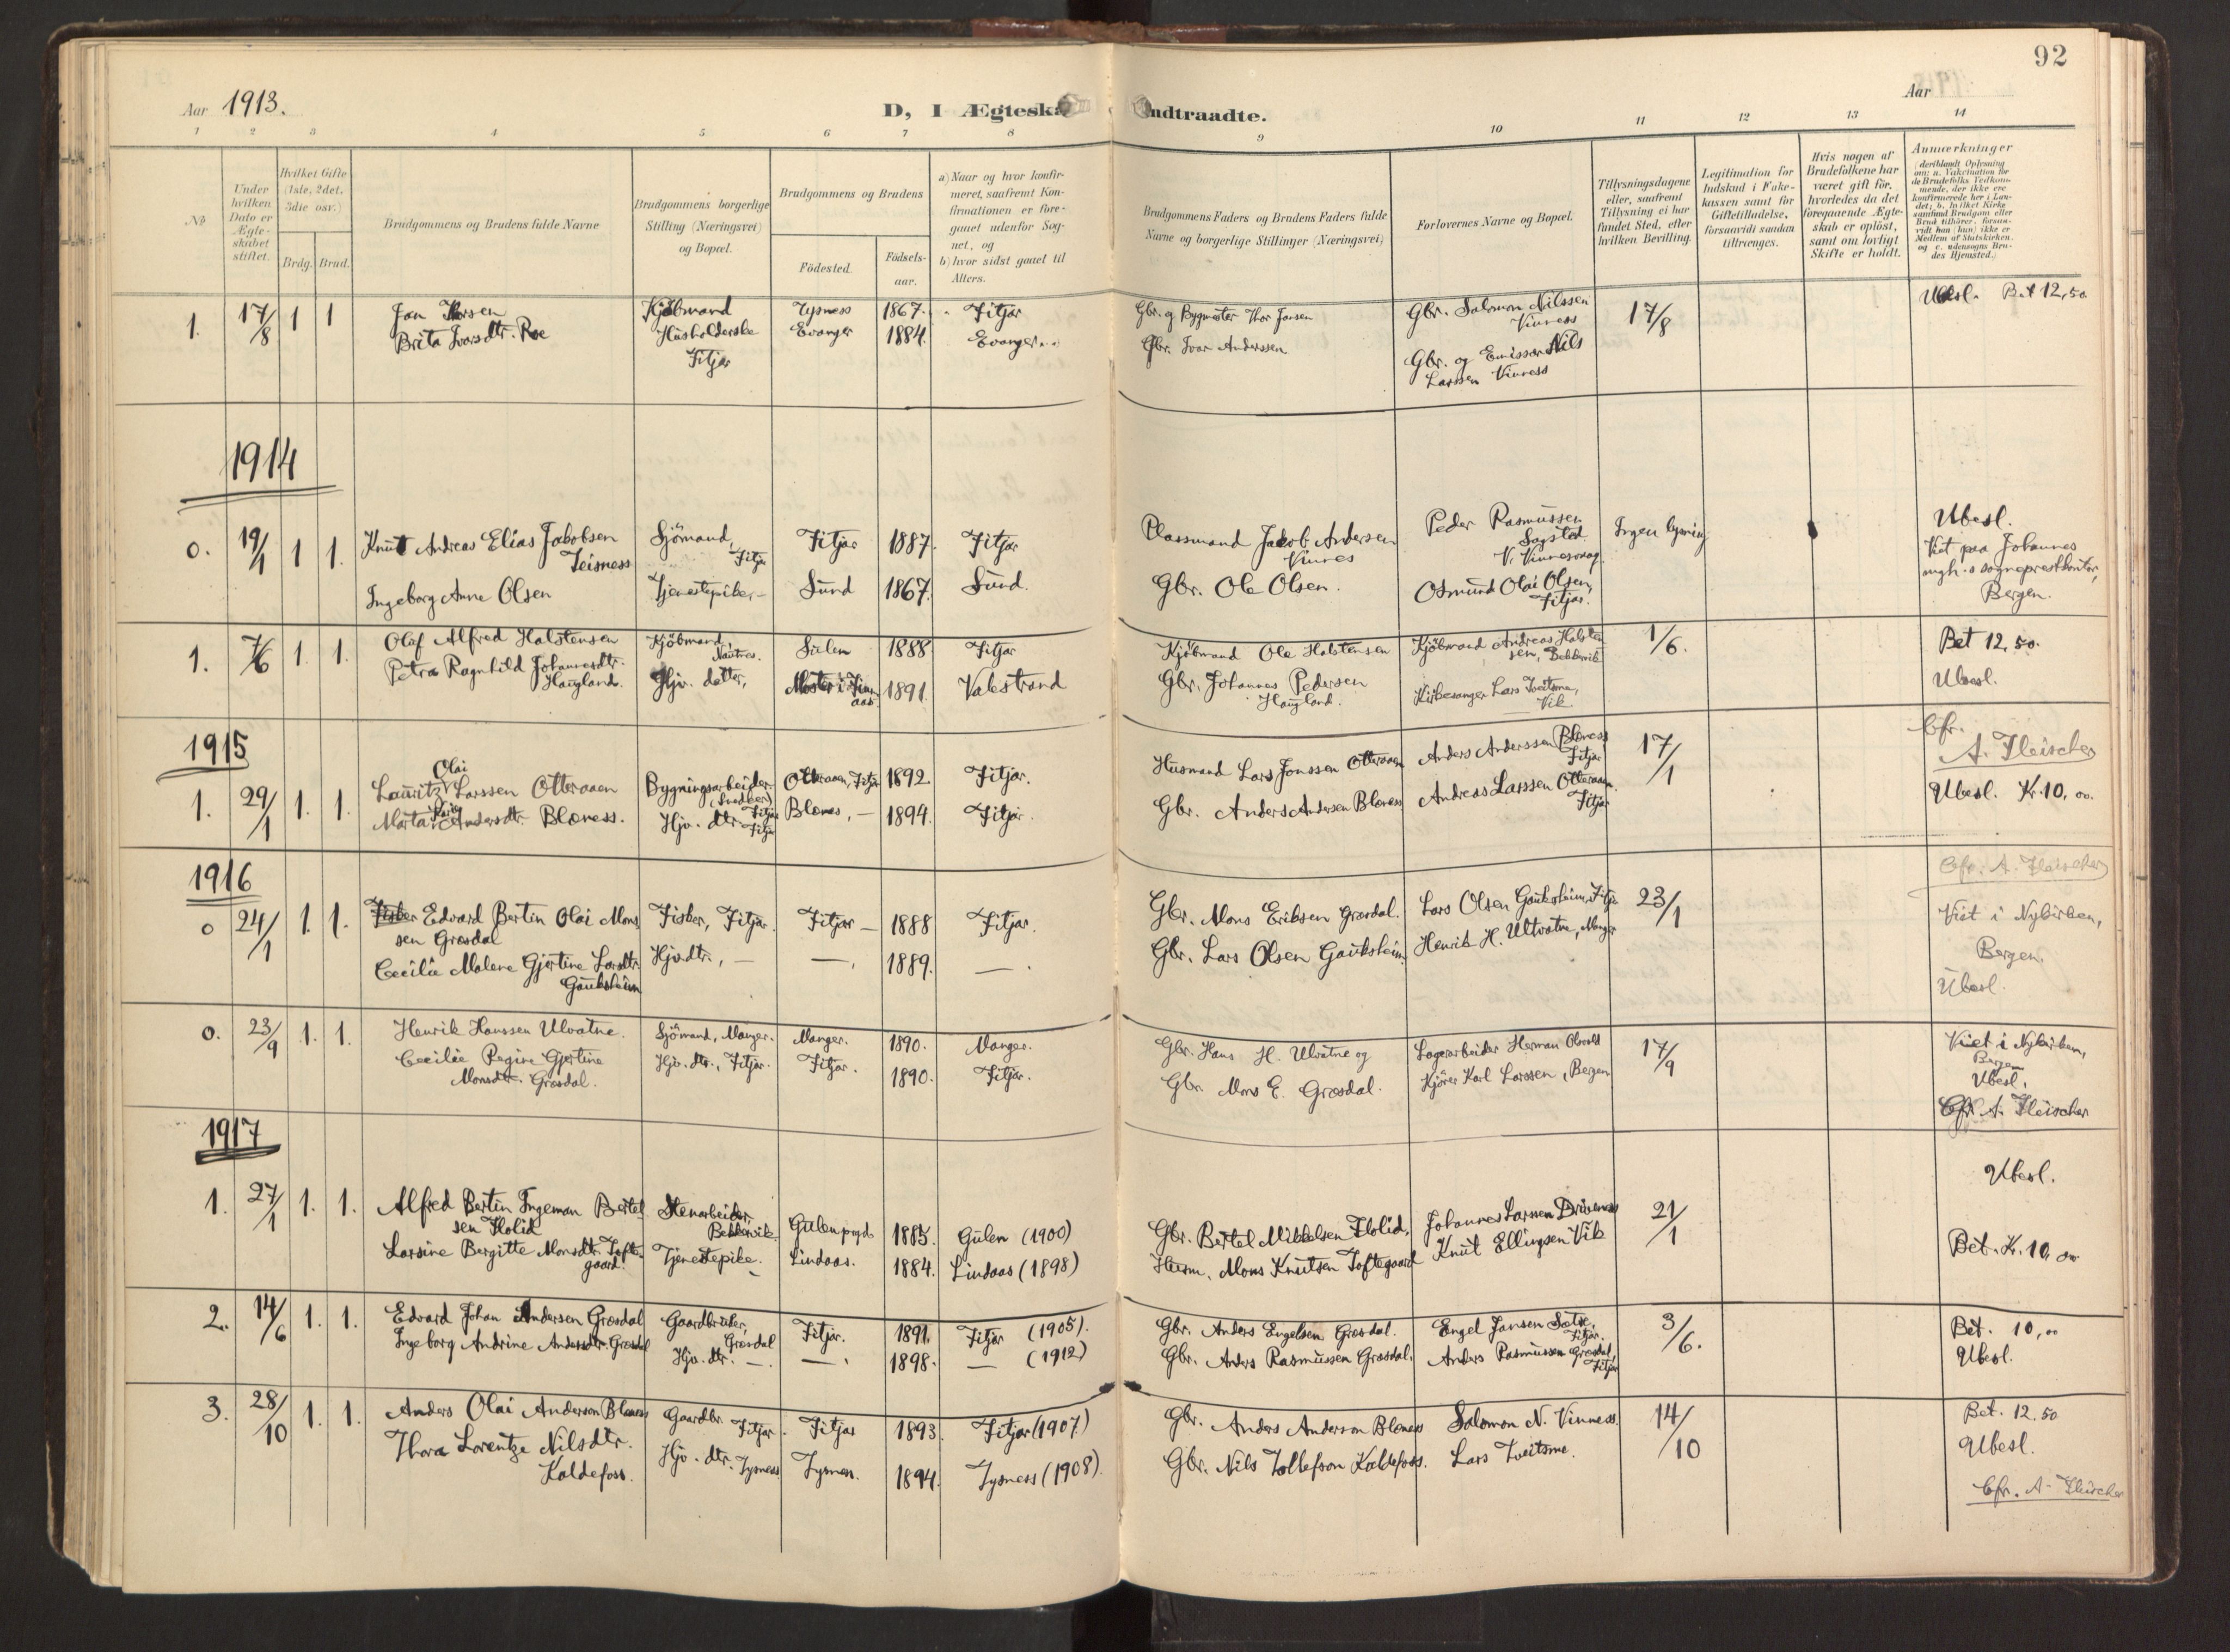 92
Aar 1913.
D, I Ægteska
ndtraadte.
Aar
1 2 3 4 5 6 7 8 9 10 11 12 13 14
No
Under hvilken Dato er Ægteskabet stiftet.
Hvilket Gifte (1ste, 2det, 3die osv.)
Brdg. Brud.
Brudgommens og Brudens fulde Navne
Brudgommens borgerlige Stilling (Næringsvei) og Bopæl.
Brudgommens og Brudens
Födested.
Födsels-aar.
a) Naar og hvor konfirmeret, saafremt Konfirmationen er foregaaet udenfor Sognet, og
b) hvor sidst gaaet til Alters.
Brudgommens Faders og Brudens Faders fulde Navne og borgerlige Stillinger (Næringsvei)
Forlovernes Navne og Bopæl.
Tillysningsdagene eller, saafremt Tillysning ei har fundet Sted, efter hvilken Bevilling.
Legitimation for Indskud i Enkekassen samt for Giftetilladelse, forsaavidt saadan tiltrænges.
Hvis nogen af Brudefolkene har været gift før, hvorledes da det foregaaende Ægteskab er opløst, samt om lovligt Skifte er holdt.
Anmærkninger (deriblandt Oplysning om: a. Vakcination for de Brudefolks Vedkommende, der ikke ere konfirmerede her i Landet; b. hvilket Kirkesamfund Brudgom eller Brud tilhører, forsaavidt han (hun) ikke er Medlem af Statskirken, og c. udensogns Brudes Hjemsted.)
1. 17/8 1 1 Jon Thorsen Kjøbmand Tysness 1867. Fitjar Gbr. og Bygmester Thor Jonsen Gbr. Salomon Nilssen Vinness 17/8 Ubesl. Bet 12,50
Brita Ivarsdtr. Roe Husholderske Fitjar Evanger 1884. Evanger Gbr. Ivar Anderssen Gbr. og Emissær Nils Larssen Vinness
1914
0. 19/1 1 1. Knut Andreas Elias Jakobsen Teisness Sjömand, Fitjar Fitjar 1887. Fitjar Plassmand Jakob Andersen Vinnes Peder Rasmussen Sagstad V. Vinnesvaag Ingen lysning Ubesl.
Viet paa Johannes mgh.s sogneprestkontor, Bergen.
Ingeborg Anne Olsen Tjenestepike – Sund 1867. Sund. Gbr. Ole Olsen. Osmund Olai Olsen, Fitjar.
1. 7/6 1. 1. Olaf Alfred Halstensen Kjöbmand, Sulen 1888 Fitjar Kjöbmand Ole Halstensen Kjöbmand Andreas Halstensen, Bekkervik 1/6. Bet 12,50.
Petra Ragnhild Johannesdtr. Haugland. Hjv. datter, Moster 1891. Valestrand Gbr. Johannes Pedersen Haugland. Kirkesanger Lars Tveitsme, Vik Ubesl.
1915
Cfr. A. Fleischer
1. 29/1 1. 1. Lauritz Olai Larssen Otteraaen Bygningsarbeider (Snedker) Fitjar Otteraaen, Fitjar 1892 Fitjar. Husmand Lars Jonssen Otteraaen Anders Anderssen Bloness Fitjar 17/1
Marta Andersdtr. Bloness. Hjv. dtr. Fitjar Blones, – 1894. Fitjar. Gbr. Anders Andersen Bloness Andreas Larssen Otteraaen Fitjar Ubesl. Kr. 10,00.
1916
Cfr. A. Fleischer
0 24/1 1. 1. Fisker Edvard Bertin Olai Monssen Grøsdal Fisker, Fitjar. Fitjar – 1888 Fitjar. Gbr. Mons Eriksen Grøsdal. Lars Olsen Gauksheim, Fitjar 23/1 Viet i Nykirken, Bergen.
Cecilie Malene Gjertine Larsdtr. Gauksheim Hjv.dtr., – –, 1889. –. Gbr. Lars Olsen Gauksheim. Henrik H. Ulvatne, Manger Ubesl.
0. 23/9 1. 1. Henrik Hanssen Ulvatne. Sjömand, Manger. Manger. 1890. Manger. Gbr. Hans H. Ulvatne og Lagerarbeider Herman 17/9 Viet i Nykirken, Bergen
Cecilie Regine Gjertine Monsdtr. Grøsdal. Hjv. dtr., Fitjar. Fitjar. 1890. Fitjar. Gbr. Mons E. Grøsdal. Kjører Karl Larssen, Bergen Ubesl.
Cfr. A. Fleischer
1917
1. 27/1 1. 1. Alfred Bertin Ingeman Bertelsen Flolid Stenarbeider, Bekkervik. Gulen pregd. 1885. Gulen (1900) Gbr. Bertel Mikkelsen Flolid. Johannes Larssen Drivenes 21/1 Ubesl.
Larsine Bergitte Monsdtr. Toftegaard. Tjenestepike. Lindaas. 1884. Lindaas (1898) Husm. Mons Knutsen Toftegaard Knut Ellingsen Vik Bet. Kr. 10,00
2. 14/6 1. 1. Edvard Johan Andersen Grøsdal Gaardbruker, Grøsdal Fitjar. 1891. Fitjar (1905). Gbr. Anders Engelsen Grøsdal. Engel Jansen Sætre, Fitjar. 3/6. Bet. 10,00
Ingeborg Andrine Andersdtr. Grøsdal Hjv. dtr. –. –. 1898. – (1912) Gbr. Anders Rasmussen Grøsdal. Anders Rasmussen Grøsdal, Fitjar Ubesl.
3. 28/10 1. 1. Anders Olai Anderson Bloness Gaardbr. Fitjar. Fitjar 1893. Fitjar (1907) Gbr. Anders Anderson Bloness Salomon N. Vinness. 14/10 Bet. 12.50
Thora Lorentze Nilsdtr. Koldefoss. Hjv. dtr. Tysness Tysnes. 1894. Tysness (1908). Gbr. Nils Tollefson Koldefoss. Lars Tveitsme. Ubesl.
Cfr. A. Fleischer